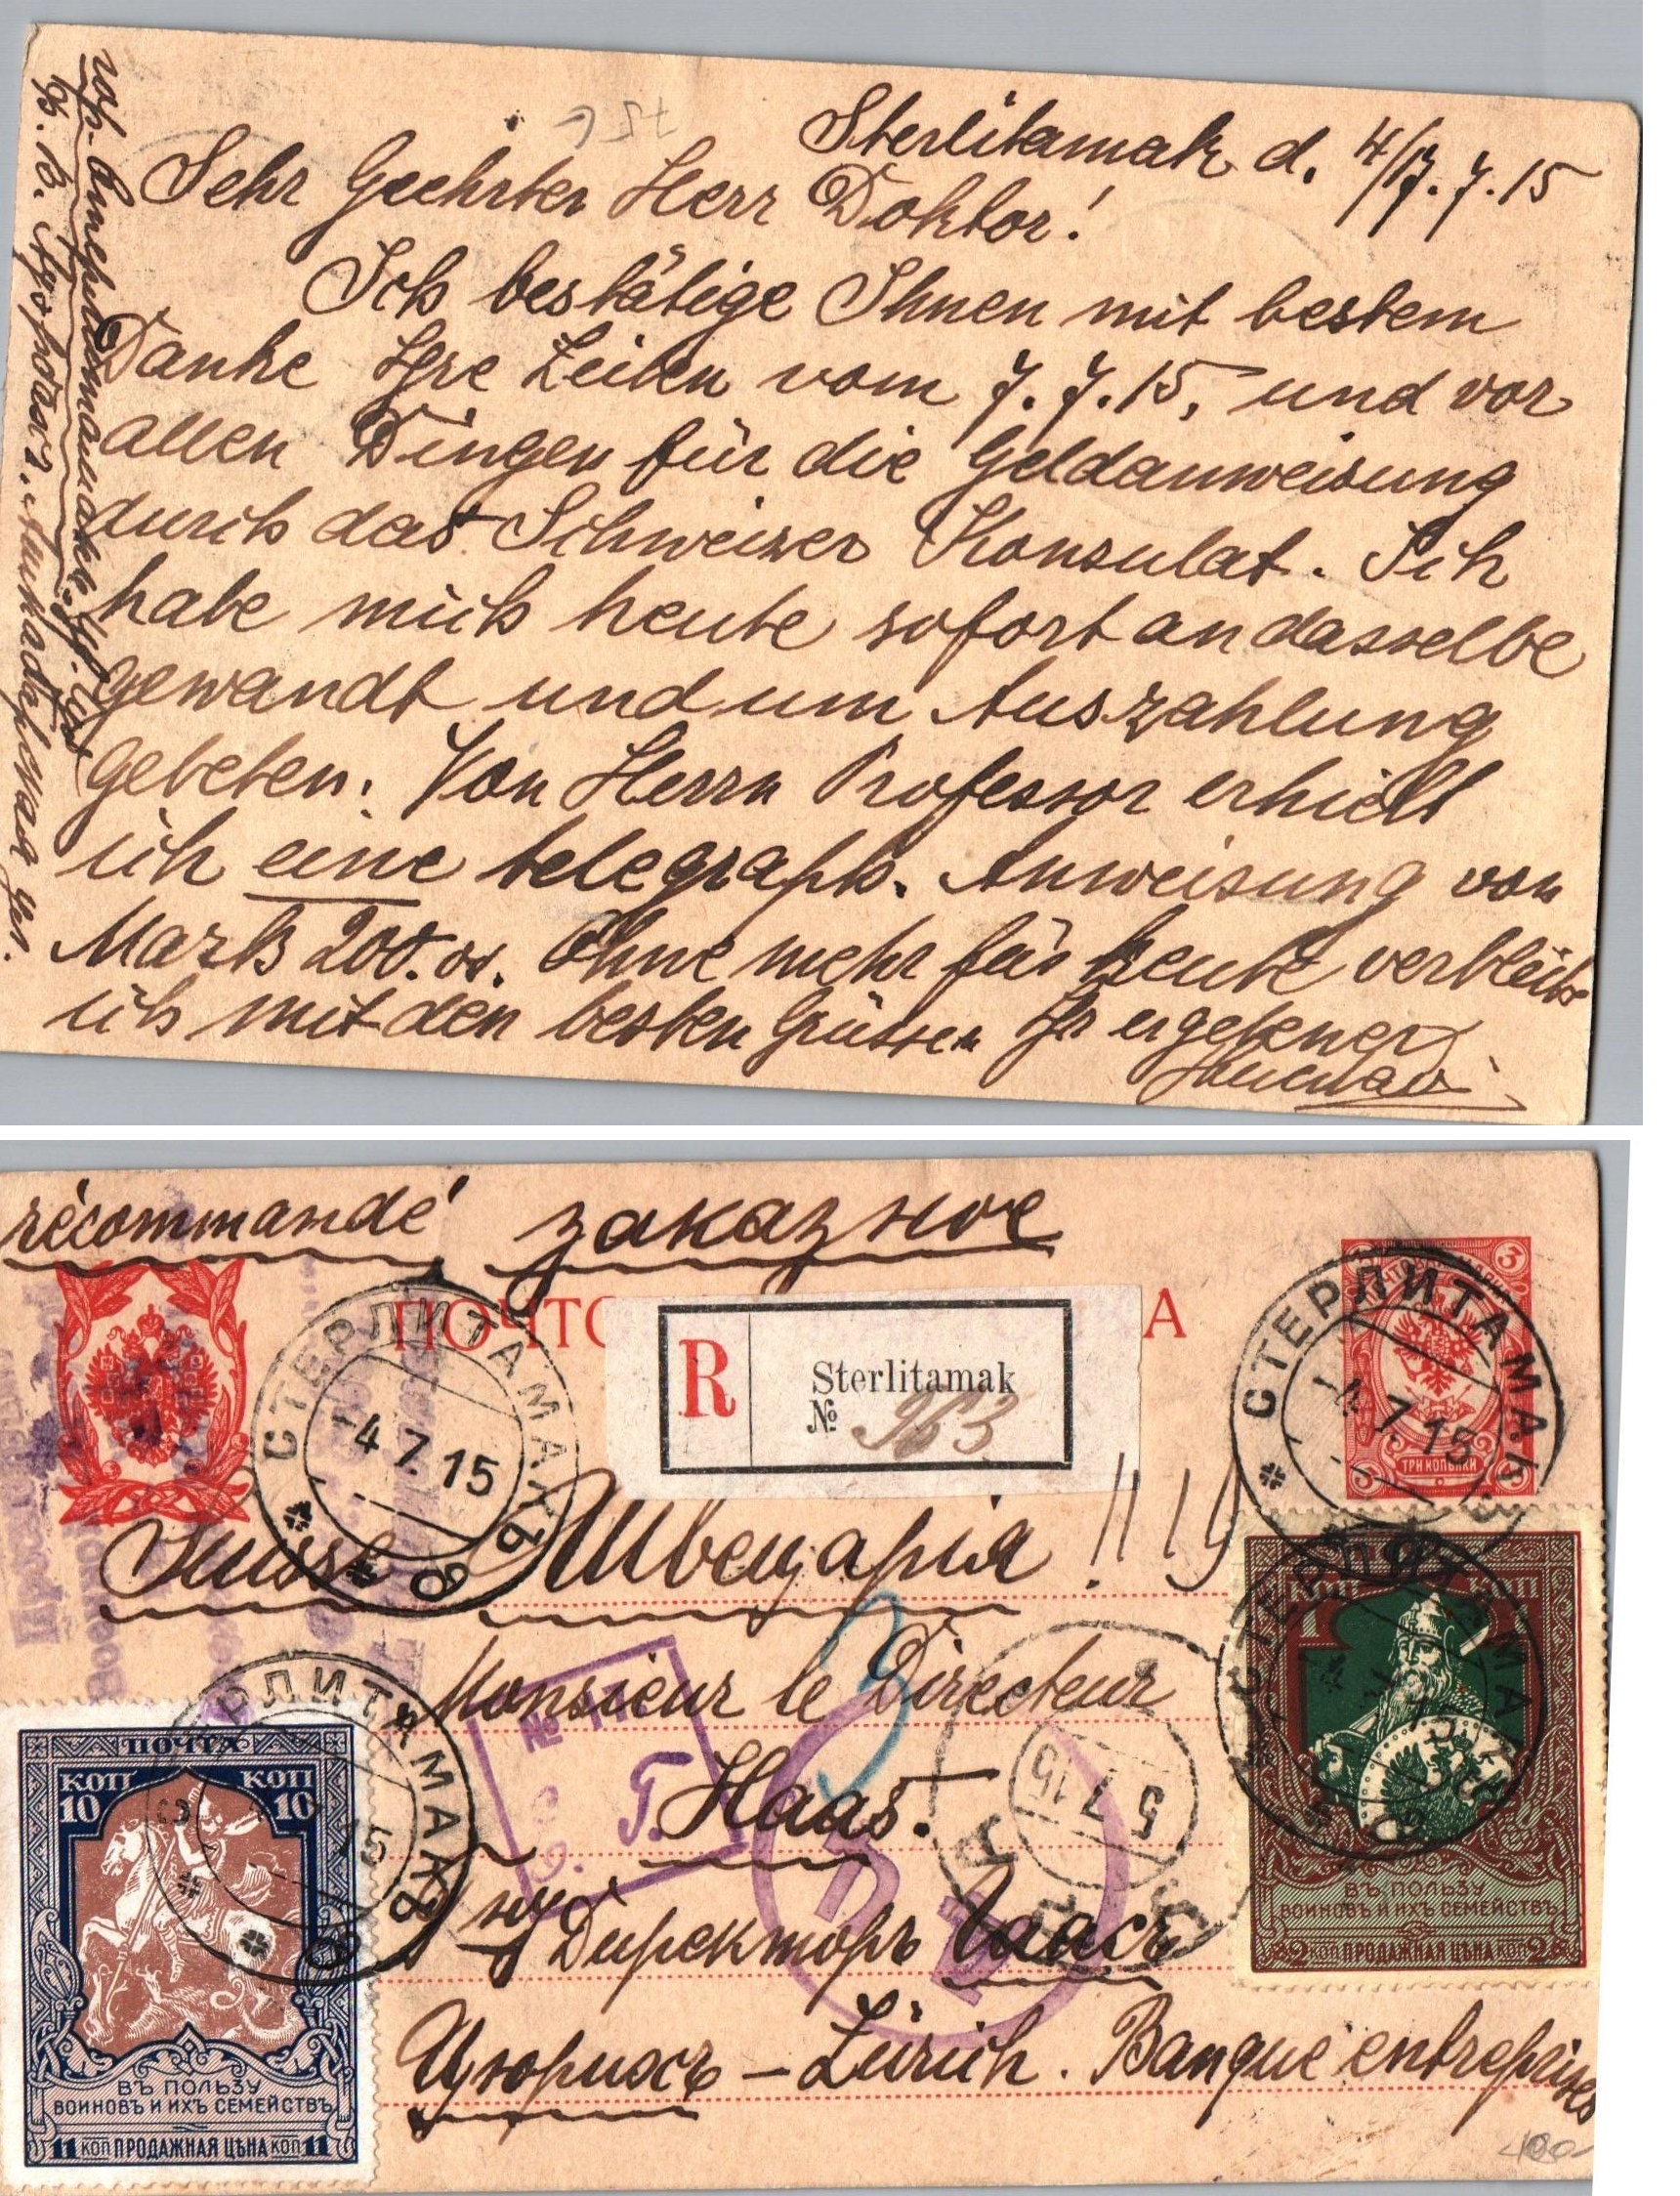 Sterlitamak d. 4/17.7.15
Sehr Geehrter Herr Doktor!
Ich bestätige Ihnen mit bestem
Danke Ihre Zeilen vom 7.7.15, und vor
allen Dingen für die Geldanweisung
durch das Schweizer Konsulat. Ich
habe mich heute sofort an dasselbe
gewandt und um Auszahlung
gebeten. Von Herrn Professor erhielt
ich eine telegraph. Anweisung von
Mark 200.00. Ohne mehr für heute verbleibe
ich mit den besten Grüssen Ihr ergebener
гор. Стерлитамакъ, Уф. губ.
recommandé заказное
ПОЧТО А
R Sterlitamak
№ 963
СТЕРЛИТАМАКЪ
-4 7 15
СТЕРЛИТАМАКЪ
-4 7 15
3 3
ТРИ КОПЕЙКИ
Suisse Швецарія !!
Monsieur le Directeur
Haas.
Директоръ Гаасъ
Цюрихъ – Zürich. Banque entreprises
5 7 15
СТЕРЛИТАМАКЪ
ПОЧТА
КОП 10 КОП 10
ВЪ ПОЛЬЗУ
ВОИНОВЪ И ИХЪ СЕМЕЙСТВЪ
11 КОП ПРОДАЖНАЯ ЦѢНА КОП 11
КОП 1 КОП
ВЪ ПОЛЬЗУ
ВОИНОВЪ И ИХЪ СЕМЕЙСТВЪ
2 КОП ПРОДАЖНАЯ ЦѢНА КОП 2